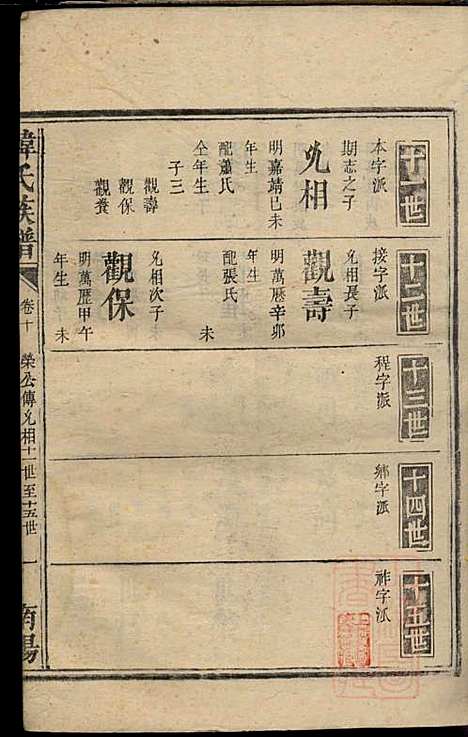 十一世
本字派
期志之子
允相
明嘉靖己未
年生
配蕭氏
仝年生
子三
觀壽
觀保
觀養
十二世
接字派
允相長子
觀壽
明萬曆辛卯
年生
配張氏
未
允相次子
觀保
明萬歷甲午
年生
未
十三世
程字派
十四世
鄉字派
十五世
祚字派
韓氏族譜
卷十
榮公傳允相十一世至十五世
一
南陽